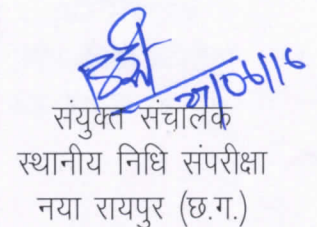 27/06/16
संयुक्त संचालक
स्थानीय निधि संपरीक्षा
नया रायपुर (छ.ग.)